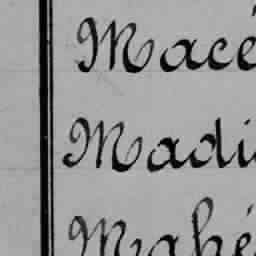 Macé
Madi
Mahé